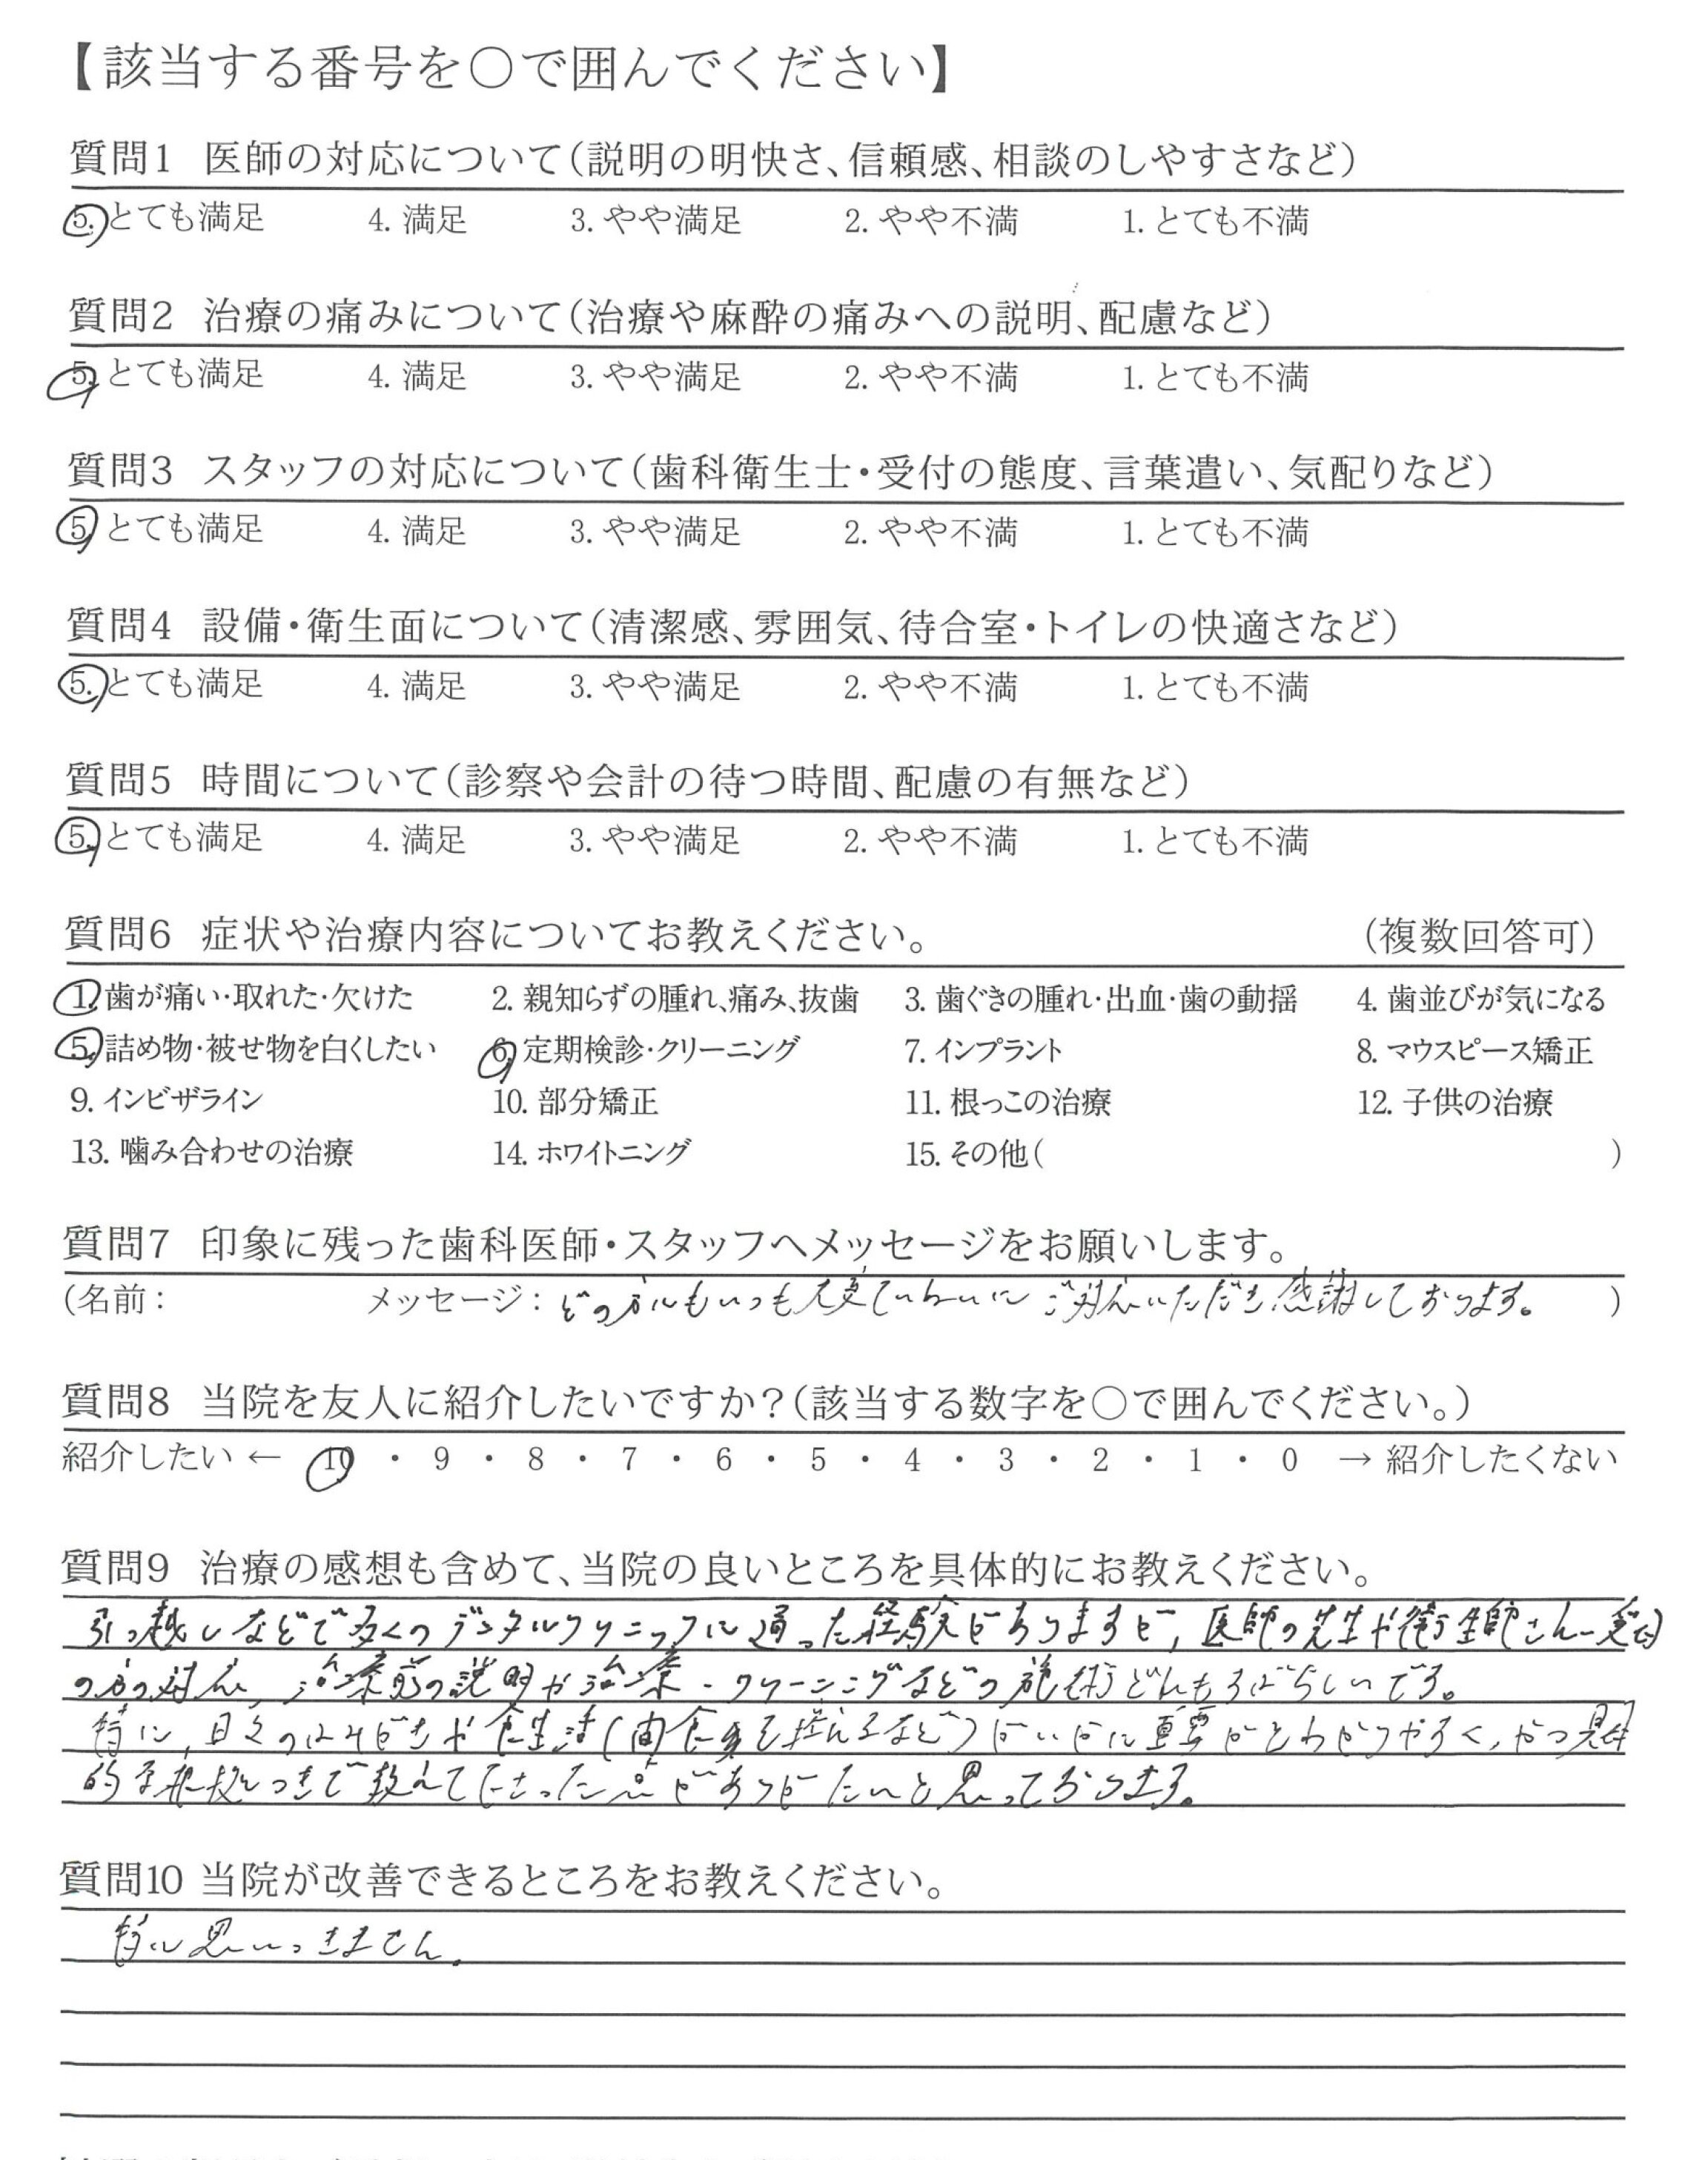 【該当する番号を○で囲んでください】
質問1 医師の対応について(説明の明快さ、信頼感、相談のしやすさなど)
5. とても満足 4. 満足 3. やや満足 2. やや不満 1. とても不満
質問2 治療の痛みについて(治療や麻酔の痛みへの説明、配慮など)
5. とても満足 4. 満足 3. やや満足 2. やや不満 1. とても不満
質問3 スタッフの対応について(歯科衛生士・受付の態度、言葉遣い、気配りなど)
5. とても満足 4. 満足 3. やや満足 2. やや不満 1. とても不満
質問4 設備・衛生面について(清潔感、雰囲気、待合室・トイレの快適さなど)
5. とても満足 4. 満足 3. やや満足 2. やや不満 1. とても不満
質問5 時間について(診察や会計の待つ時間、配慮の有無など)
5. とても満足 4. 満足 3. やや満足 2. やや不満 1. とても不満
質問6 症状や治療内容についてお教えください。 (複数回答可)
1. 歯が痛い・取れた・欠けた 2. 親知らずの腫れ、痛み、抜歯 3. 歯ぐきの腫れ・出血・歯の動揺 4. 歯並びが気になる
5. 詰め物・被せ物を白くしたい 6. 定期検診・クリーニング 7. インプラント 8. マウスピース矯正
9. インビザライン 10. 部分矯正 11. 根っこの治療 12. 子供の治療
13. 噛み合わせの治療 14. ホワイトニング 15. その他( )
質問7 印象に残った歯科医師・スタッフへメッセージをお願いします。
(名前: メッセージ: どの方にもいつも大変ていねいにご対応いただき感謝しております。 )
質問8 当院を友人に紹介したいですか?(該当する数字を○で囲んでください。)
紹介したい ← 10 ・ 9 ・ 8 ・ 7 ・ 6 ・ 5 ・ 4 ・ 3 ・ 2 ・ 1 ・ 0 → 紹介したくない
質問9 治療の感想も含めて、当院の良いところを具体的にお教えください。
引っ越しなどで多くのデンタルクリニックに通った経験がありますが、医師の先生や衛生師さん、受付
の方の対応、治療前の説明や治療・クリーニングなどの施術どれもすばらしいです。
特に、日々のはみがきや食生活(間食を控えるなど)がいかに重要かとわかりやすく、かつ具体
的な根拠つきで教えて下さった点がありがたいと思っております。
質問10 当院が改善できるところをお教えください。
特に思いつきません。